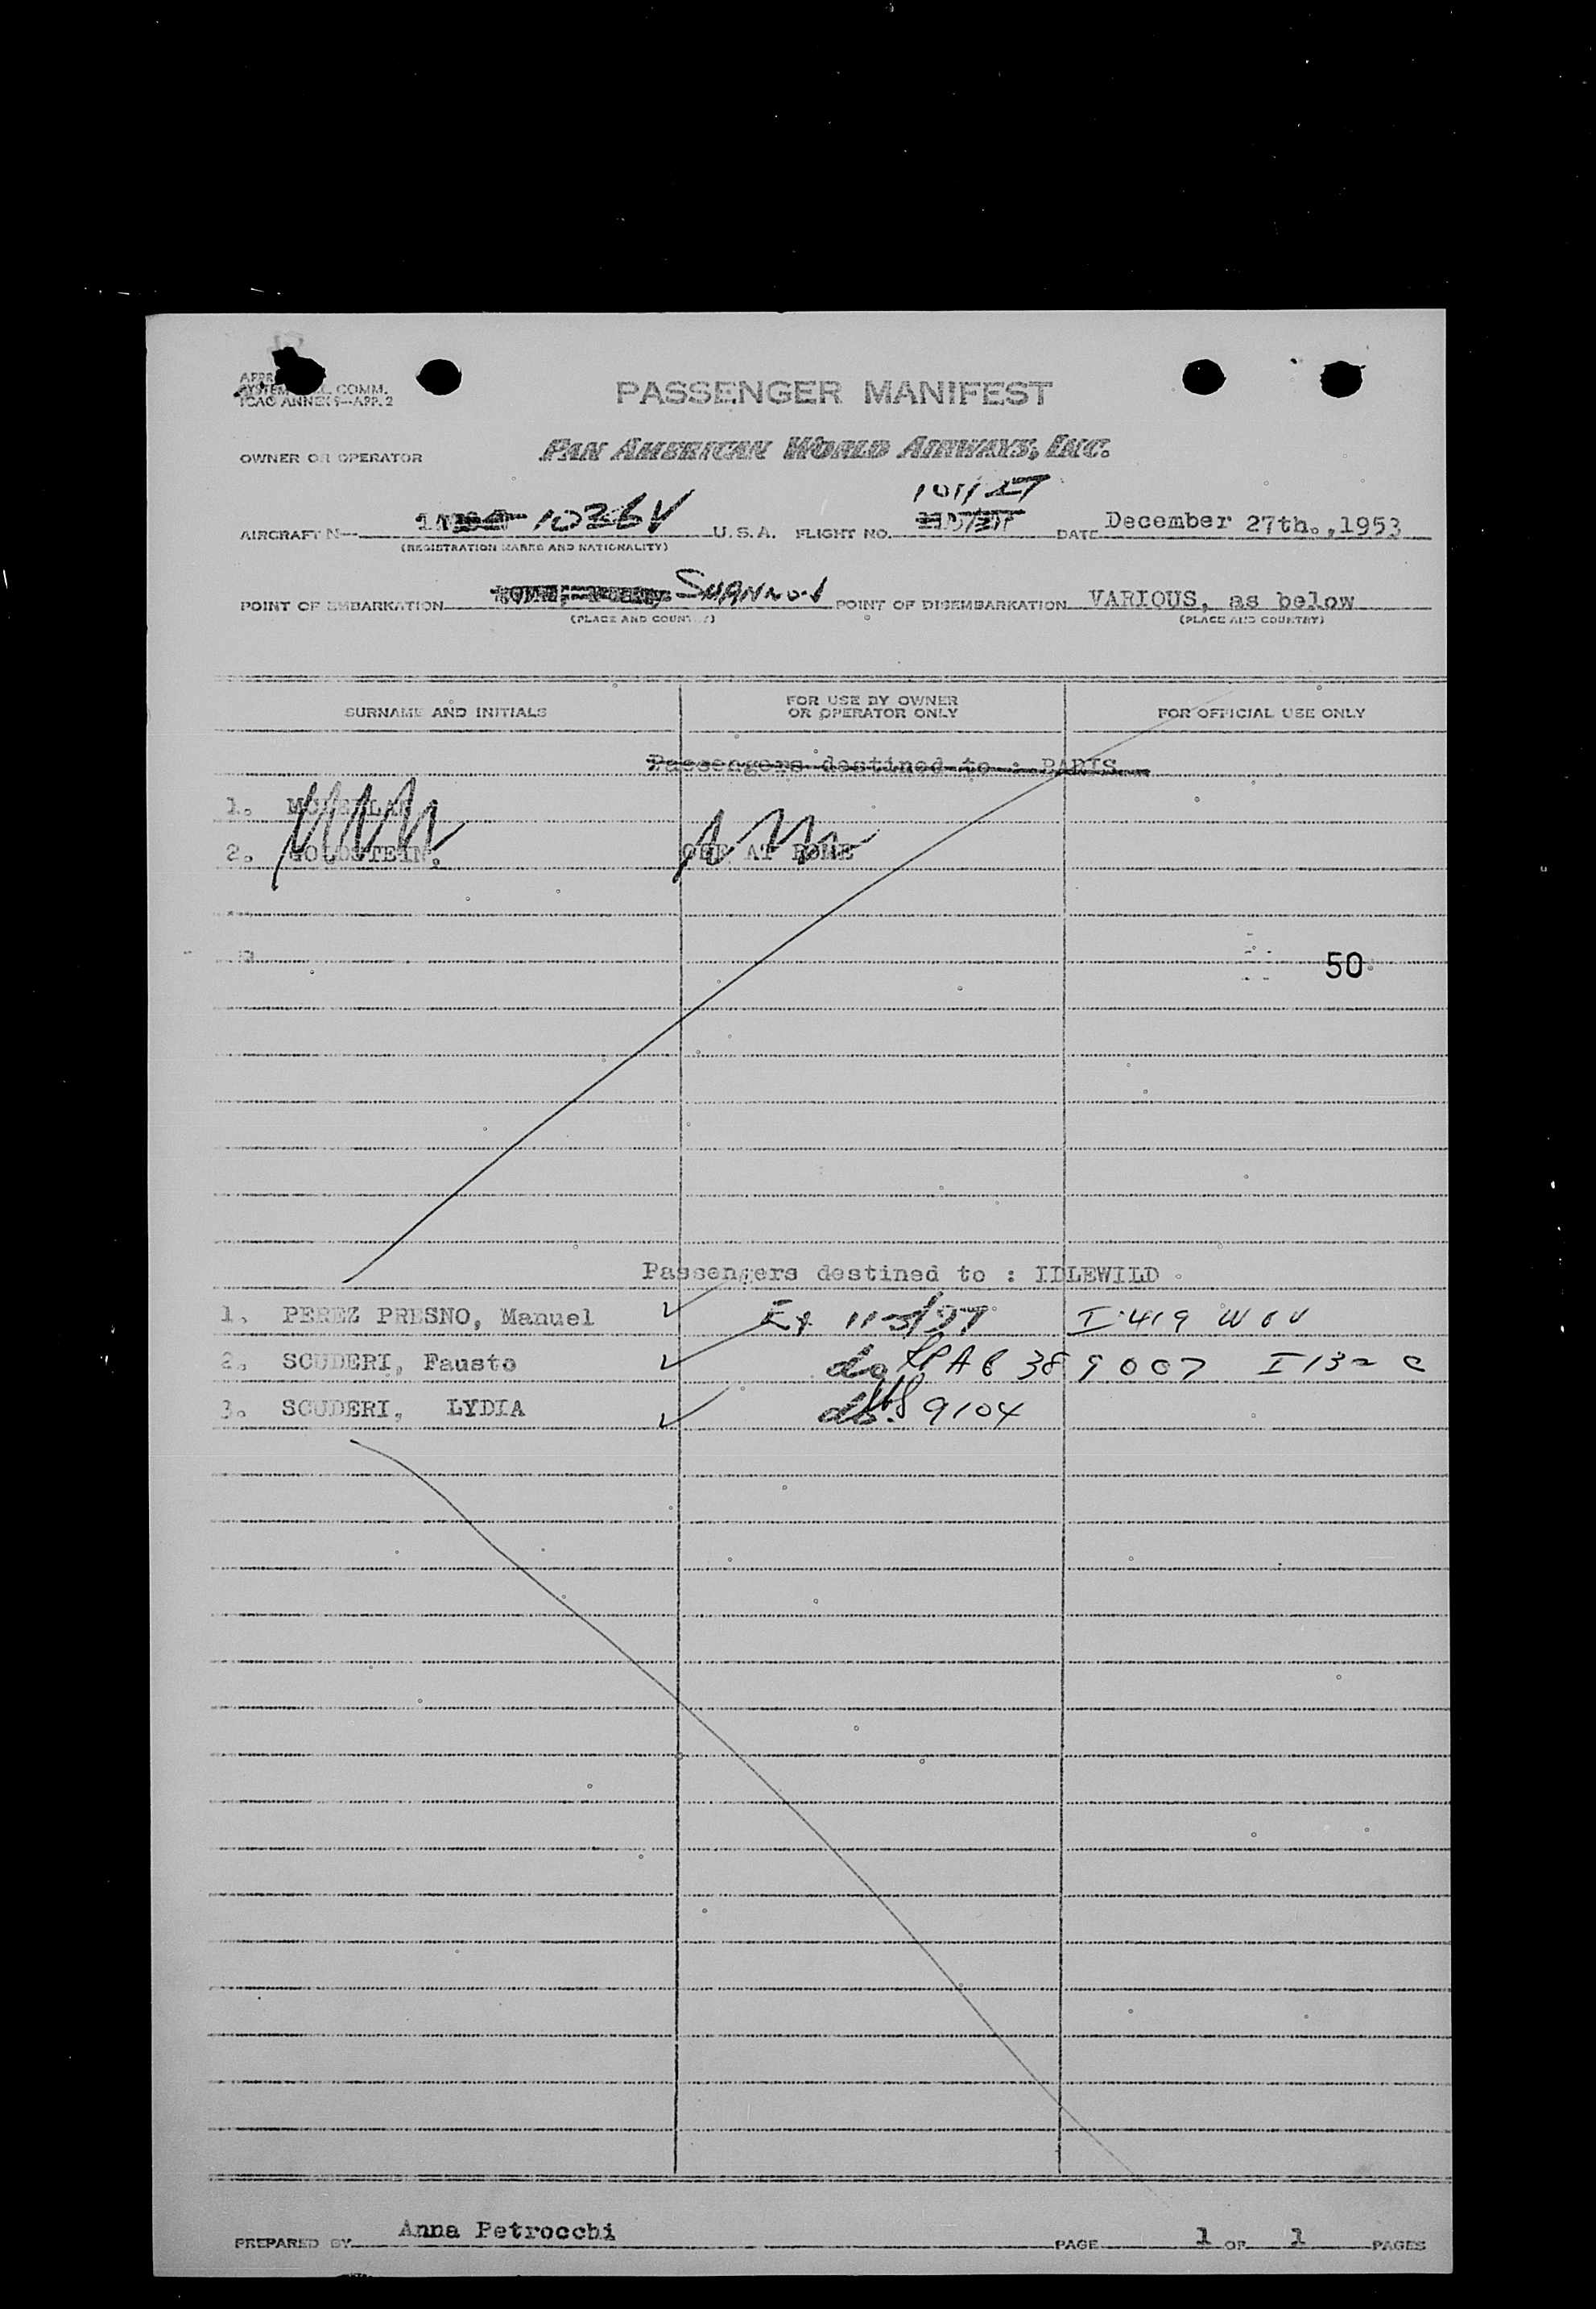 COMM.
ICAO ANNEX 9—APP. 2
PASSENGER MANIFEST
OWNER OR OPERATOR PAN AMERICAN WORLD AIRWAYS, INC.
101/27
AIRCRAFT N— 1036V U. S. A. FLIGHT NO. DATE December 27th.,1953
(REGISTRATION MARKS AND NATIONALITY)
POINT OF EMBARKATION SHANNON POINT OF DISEMBARKATION VARIOUS, as below
(PLACE AND COUNTRY) (PLACE AND COUNTRY)
SURNAME AND INITIALS FOR USE BY OWNER OR OPERATOR ONLY FOR OFFICIAL USE ONLY
Passengers destined to : PARIS
1.
2. GOLDSTEIN, OFF AT ROME
50
Passengers destined to : IDLEWILD
1. PEREZ PRESNO, Manuel I 419
2. SCUDERI, Fausto do I 132 C
3. SCUDERI, LYDIA do 9104
PREPARED BY Anna Petrocchi PAGE 1 OF 1 PAGES